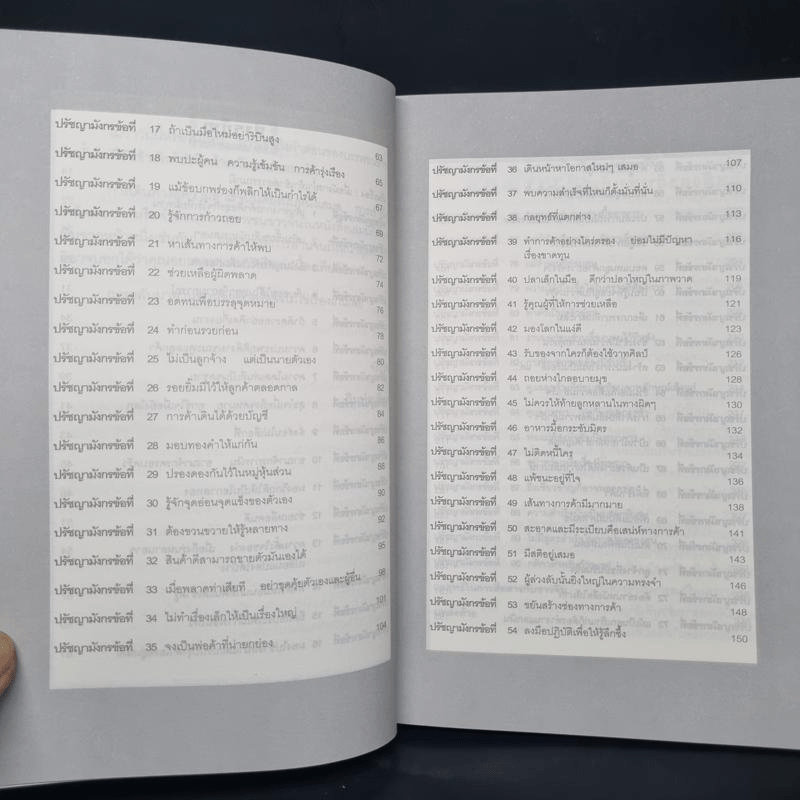 ปรัชญามังกรข้อที่ 17 ถ้าเป็นมือใหม่อย่าริบินสูง 63
ปรัชญามังกรข้อที่ 18 พบปะผู้คน ความรู้เข้มข้น การค้ารุ่งเรือง 65
ปรัชญามังกรข้อที่ 19 แม้ข้อบกพร่องก็พลิกให้เป็นกำไรได้ 67
ปรัชญามังกรข้อที่ 20 รู้จักการก้าวถอย 69
ปรัชญามังกรข้อที่ 21 หาเส้นทางการค้าให้พบ 72
ปรัชญามังกรข้อที่ 22 ช่วยเหลือผู้ผิดพลาด 74
ปรัชญามังกรข้อที่ 23 อดทนเพื่อบรรลุจุดหมาย 76
ปรัชญามังกรข้อที่ 24 ทำก่อนรวยก่อน 78
ปรัชญามังกรข้อที่ 25 ไม่เป็นลูกจ้าง แต่เป็นนายตัวเอง 80
ปรัชญามังกรข้อที่ 26 รอยยิ้มมีไว้ให้ลูกค้าตลอดกาล 82
ปรัชญามังกรข้อที่ 27 การค้าเดินได้ด้วยบัญชี 84
ปรัชญามังกรข้อที่ 28 มอบทองคำให้แก่กัน 86
ปรัชญามังกรข้อที่ 29 ปรองดองกันไว้ในหมู่หุ้นส่วน 88
ปรัชญามังกรข้อที่ 30 รู้จักจุดอ่อนจุดแข็งของตัวเอง 90
ปรัชญามังกรข้อที่ 31 ต้องขวนขวายให้รู้หลายทาง 92
ปรัชญามังกรข้อที่ 32 สินค้าดีสามารถขายตัวมันเองได้ 95
ปรัชญามังกรข้อที่ 33 เมื่อพลาดท่าเสียที อย่าขุดคุ้ยตัวเองและผู้อื่น 98
ปรัชญามังกรข้อที่ 34 ไม่ทำเรื่องเล็กให้เป็นเรื่องใหญ่ 101
ปรัชญามังกรข้อที่ 35 จงเป็นพ่อค้าที่น่ายกย่อง 104
ปรัชญามังกรข้อที่ 36 เดินหน้าหาโอกาสใหม่ๆ เสมอ 107
ปรัชญามังกรข้อที่ 37 พบความสำเร็จที่ไหนก็ตั้งมั่นที่นั่น 110
ปรัชญามังกรข้อที่ 38 กลยุทธ์ที่แตกต่าง 113
ปรัชญามังกรข้อที่ 39 ทำการค้าอย่างไตร่ตรอง ย่อมไม่มีปัญหา 116
เรื่องขาดทุน
ปรัชญามังกรข้อที่ 40 ปลาเล็กในมือ ดีกว่าปลาใหญ่ในภาพวาด 119
ปรัชญามังกรข้อที่ 41 รู้คุณผู้ที่ให้การช่วยเหลือ 121
ปรัชญามังกรข้อที่ 42 มองโลกในแง่ดี 123
ปรัชญามังกรข้อที่ 43 รับของจากใครก็ต้องใช้วาทศิลป์ 126
ปรัชญามังกรข้อที่ 44 ถอยห่างไกลอบายมุข 128
ปรัชญามังกรข้อที่ 45 ไม่ควรให้ท้ายลูกหลานในทางผิดๆ 130
ปรัชญามังกรข้อที่ 46 อาหารมื้อกระชับมิตร 132
ปรัชญามังกรข้อที่ 47 ไม่ติดหนี้ใคร 134
ปรัชญามังกรข้อที่ 48 แพ้ชนะอยู่ที่ใจ 136
ปรัชญามังกรข้อที่ 49 เส้นทางการค้ามีมากมาย 138
ปรัชญามังกรข้อที่ 50 สะอาดและมีระเบียบคือเสน่ห์ทางการค้า 141
ปรัชญามังกรข้อที่ 51 มีสติอยู่เสมอ 143
ปรัชญามังกรข้อที่ 52 ผู้ล่วงลับนั้นยิ่งใหญ่ในความทรงจำ 146
ปรัชญามังกรข้อที่ 53 ขยันสร้างช่องทางการค้า 148
ปรัชญามังกรข้อที่ 54 ลงมือปฏิบัติเพื่อให้รู้ลึกซึ้ง 150